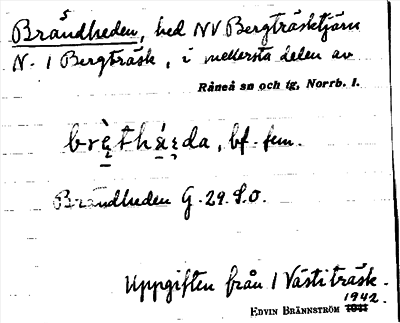 Brändheden, hed NV Bergträsktjärn
N. i Bergträsk, i mellersta delen av
Råneå sn och tg, Norrb. l.
brèthá̱e̱da, bf. fem.
Brändheden G. 29. S.O.
Uppgiften från i Västiträsk.
1942.
EDVIN BRÄNNSTRÖM 1941